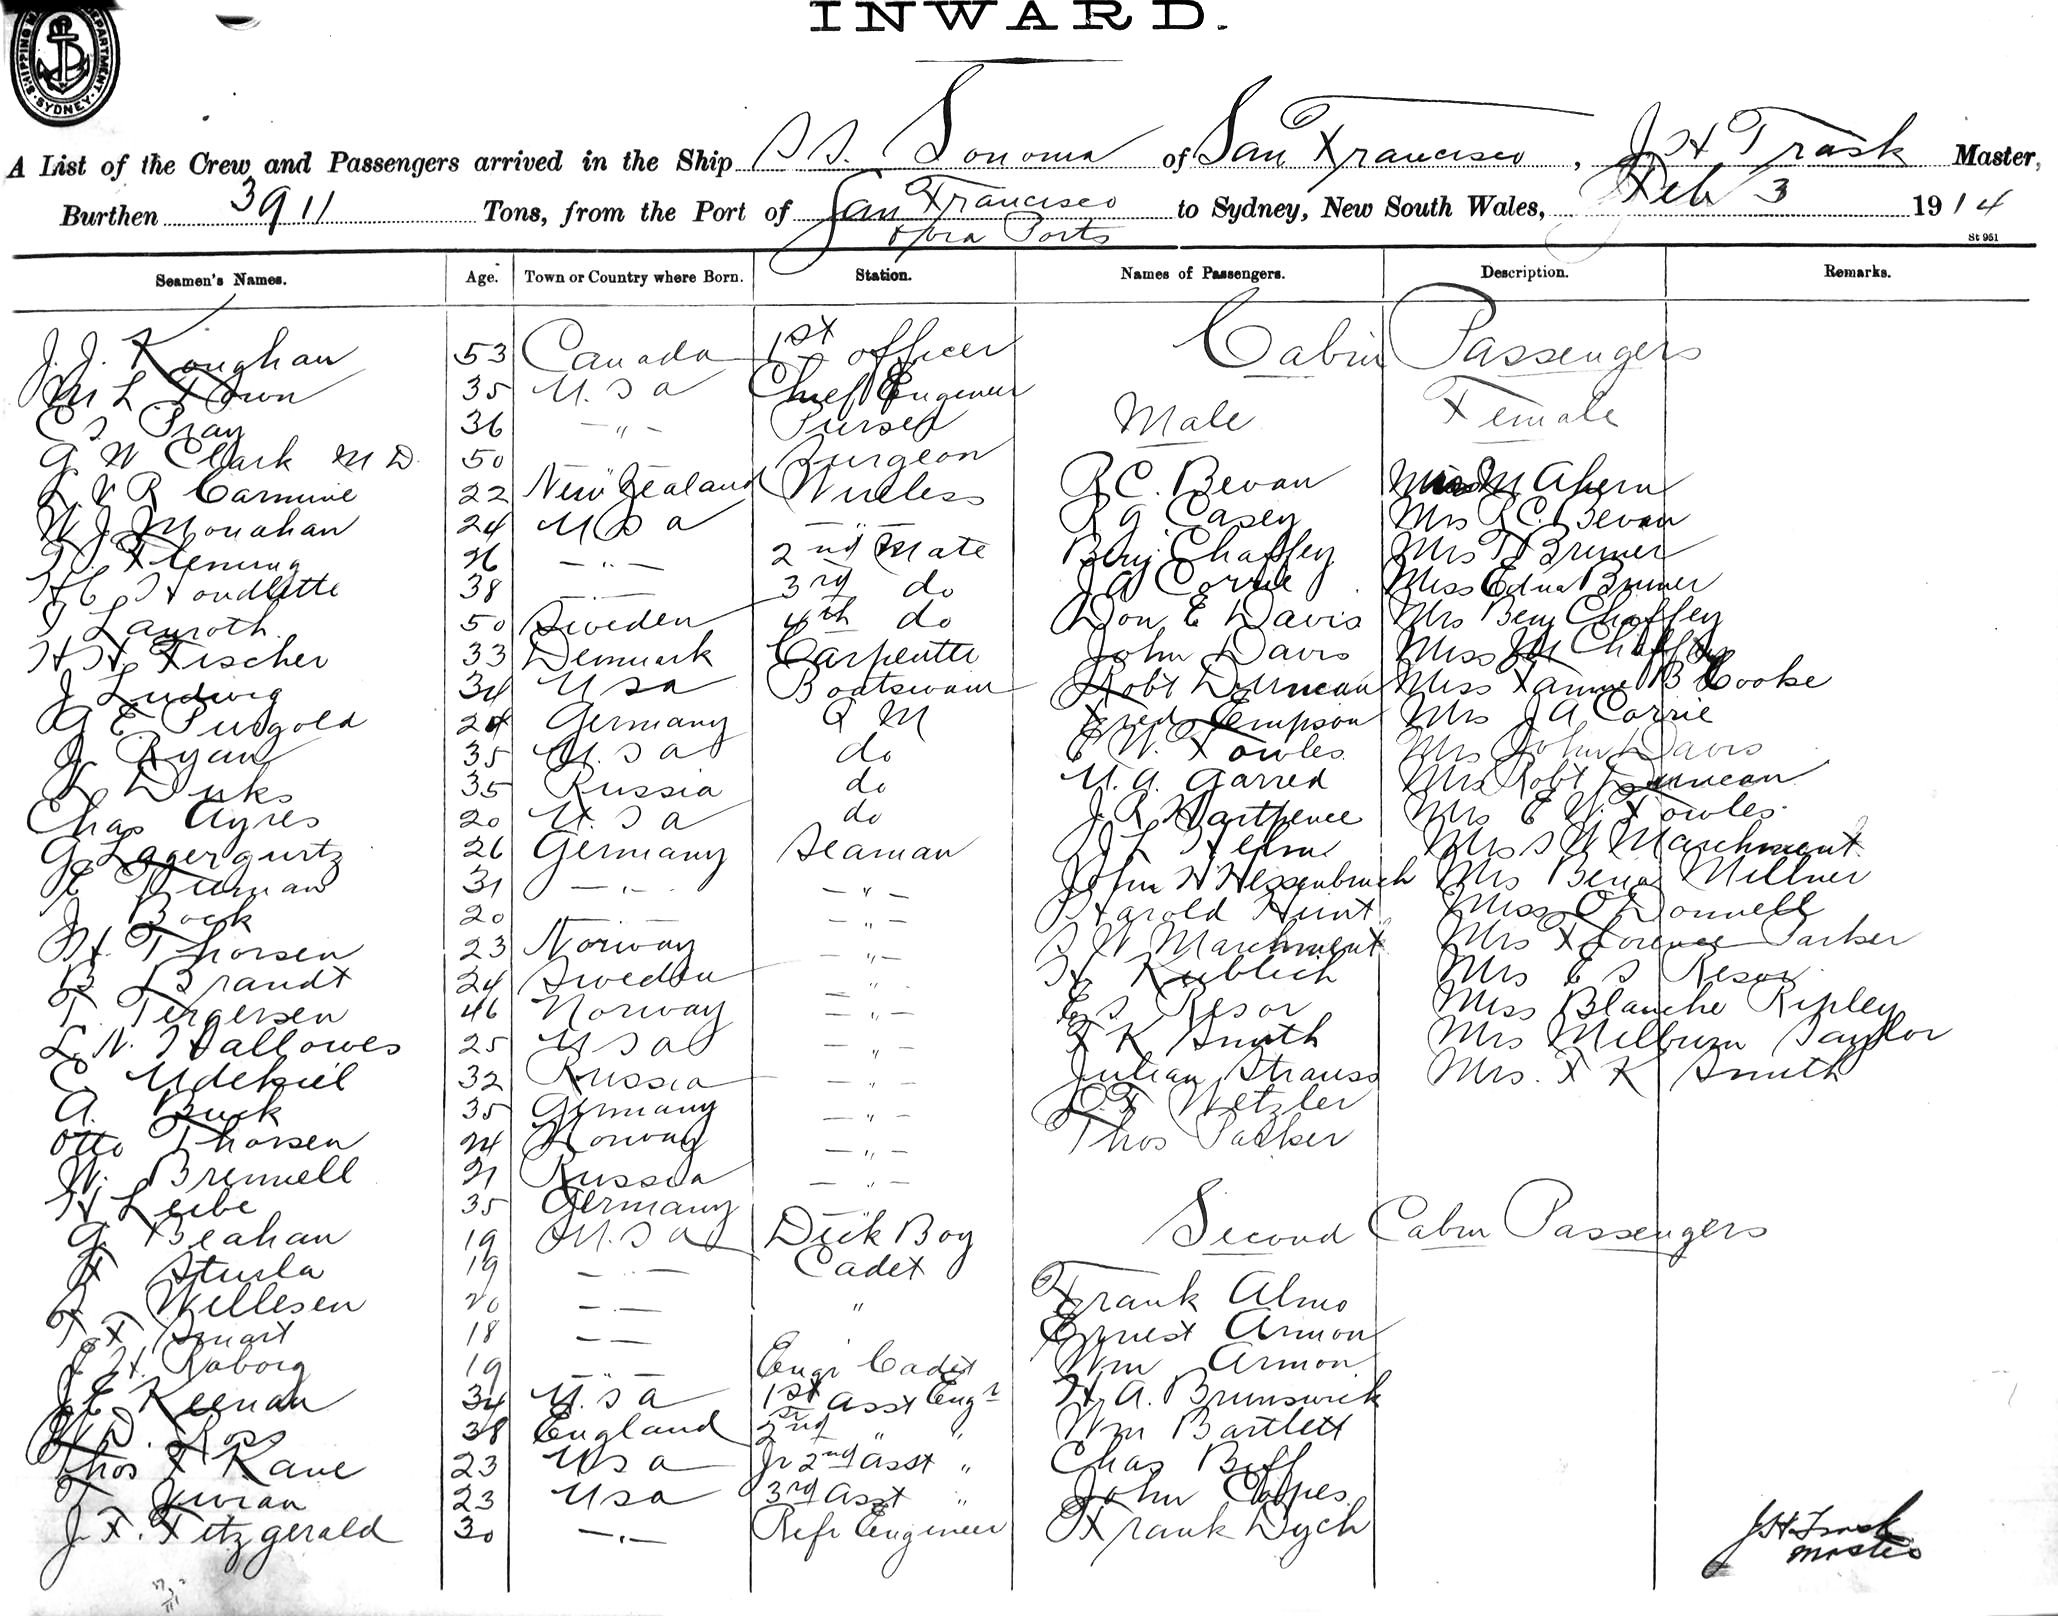 SHIPPING DEPARTMENT SYDNEY
INWARD.
A List of the Crew and Passengers arrived in the Ship S S. Sonoma of San Francisco, J H Trask Master,
Burthen 3911 Tons, from the Port of San Francisco to Sydney, New South Wales, Feb 3 1914
via Ports
St 951
Seamen's Names. Age. Town or Country where Born. Station. Names of Passengers. Description. Remarks.
Cabin Passengers
J. J. Koughan 53 Canada 1st officer
M L 35 U.S a Chief Engineer
Male Female
C S Pray 36 — " — Purser
G W Clark M D. 50 Surgeon
L V R Carmine 22 New Zealand Wireless R C. Bevan Miss M Ahern
W J Monahan 24 U S a — " — R G Casey Mrs R C. Bevan
Fleming 26 — " — 2nd Mate Benj Chaffey Mrs Bruner
H C Houdlette 38 — " — 3rd do J A Corrie Miss Edna Bruner
Lauroth 50 Sweden 4th do Don E Davis Mrs Benj Chaffey
H H Fischer 33 Denmark Carpenter John Davis Miss M Chaffey
J Ludwig 34 U S a Boatswain Robt Duncan Miss Fannie B Cooke
A E Purgold 24 Germany Q M Fred Empson Mrs J A Corrie
J. Ryan 35 U. S a do E W. Fowles Mrs John Davis
Duks 35 Russia do U. A. Garred Mrs Robt Duncan
Chas Ayres 20 U. S a do J. R Hartpence Mrs E W. Fowles
G Lagerqurtz 26 Germany Seaman J L Helm Mrs S W Marchment
31 — " — — " — John H Hessenbruch Mrs Bena Millner
J Bock 20 — " — — " — Harold Hunt Miss O'Donnell
H. Thorsen 23 Norway — " — S W Marchment Mrs Florence Parker
B Brandt 24 Sweden — " — H Kublich Mrs E S Resor
T. Tergersen 46 Norway — " — E S Resor Miss Blanche Ripley
L. N. Hallowes 25 U S a — " — F K Smith Mrs Milburn Taylor
C. Udekiel 32 Russia — " — Julian Strauss Mrs. F K Smith
A. Buck 35 Germany — " — Wetzler
Otto Thorsen 24 Norway — " — Thos Parker
W. Brennell 21 Russia — " —
H Leibe 35 Germany — " —
Second Cabin Passengers
G Beahan 19 U. S a Deck Boy
Sturla 19 — " — Cadet
Willesen 20 — " — " Frank Almo
T F Smart 18 — — Ernest Armon
J H. Raborg 19 — " — Engr Cadet Wm Armon
J. E. Keenan 34 U. S a 1st Asst Engr H. A. Brunswick
W D. Ross 38 England 2nd " " Wm Bartlett
Thos F Kane 23 U S a Jr 2nd Asst " Chas Biff
Jurian 23 U S a 3rd Asst " John Coppes
J. F. Fitzgerald 30 — " — Refr Engineer Frank Dych
J H Trask
Master